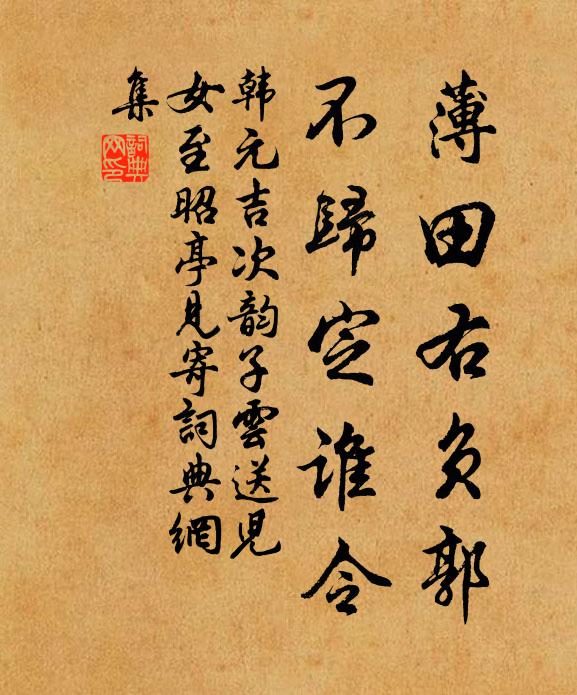 薄田右負郭
不歸定誰令
韩元吉次韵子雲送児
女至昭亭見寄詞典網
集
詞典网印